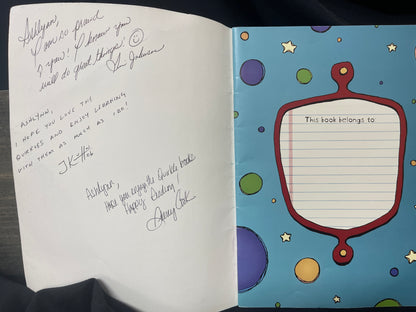 Ashlynn,
I am so proud
of you! I know you
will do great things. ☺
Johnson
ASHLYNN,
I HOPE YOU LOVE THE
QUARKS AND ENJOY LEARNING
WITH THEM AS MUCH AS I DO!
Ashlynn,
Hope you enjoy the Quarks book.
Happy Reading!
This book belongs to